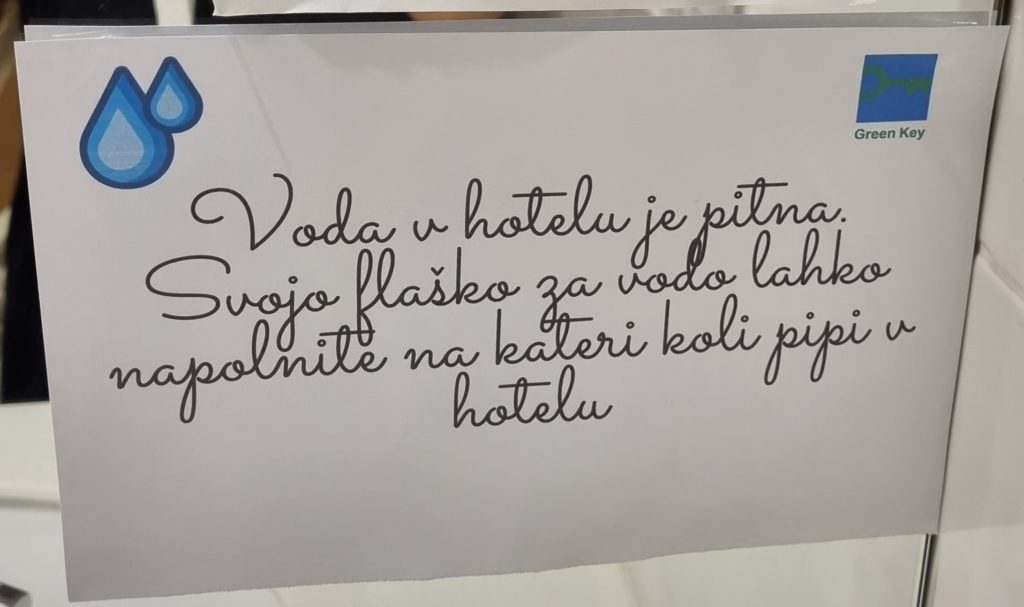 Green Key
Voda v hotelu je pitna.
Svojo flaško za vodo lahko
napolnite na kateri koli pipi v
hotelu